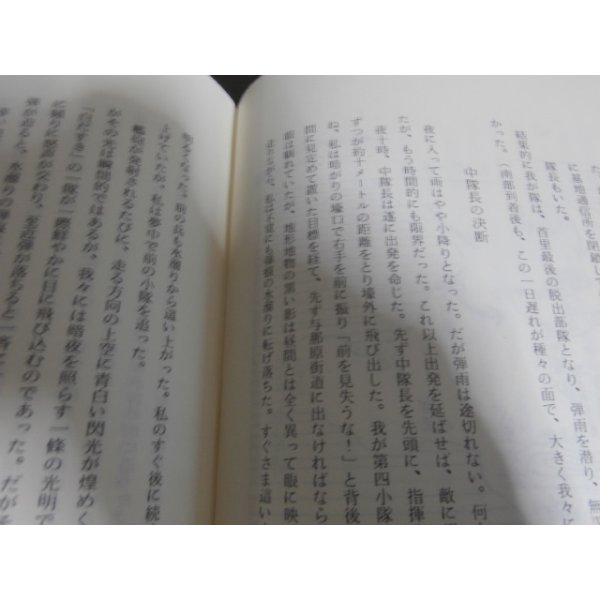 た。
に墓地通信所を閉鎖して
隊長もいた。
結果的に我が隊は、首里最後の脱出部隊となり、弾雨を潜り、無
かった。（南部到着後も、この一日遅れが種々の面で、大きく我々に
中隊長の決断
夜に入って雨はやや小降りとなった。だが弾雨は途切れない。何
たが、もう時間的にも限界だった。これ以上出発を延ばせば、敵に
夜十時、中隊長は遂に出発を命じた。先ず中隊長を先頭に、指揮
ずつが約十メートルの距離をとり壕外に飛び出した。我が第四小隊
ね、私は暗がりの壕口で右手を前に振り「前を見失うな！」と背後
間に見定めて置いた目標を経て、先ず与那原街道に出なければなら
面は晴れていたが、地形地物の黒い影は昼間とは全く異って眼に映
水溜りに転げ落ちた。すぐさま這い
なった。前の兵も水溜りから這い上がった。私のすぐ後に続
上げていたが、私は夢中で前の小隊を追った。
艦砲が発射されるたびに、走る方向の上空に青白い閃光が煌めく
がその光は瞬間的ではあるが、我々には暗夜を照らす一條の光明で
「白だすき」の一隊が一瞬鮮やかに目に飛び込むのであった。だが
に振りに怒声が交わり、至近弾が落ちると一斉に
弾が走ると、水溜りの弾